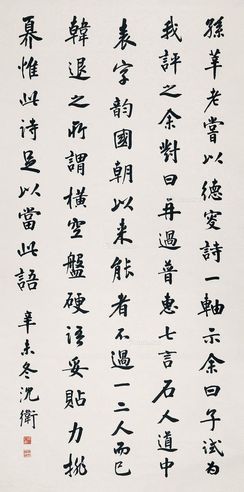 孫莘老嘗以德叟詩一軸示余曰子試為
我評之余對曰再過普惠七言石人道中
表字韵國朝以来能者不過一二人而已
韓退之所謂橫空盤硬語妥貼力排
奡惟此詩足以當此語 辛未冬沈衛